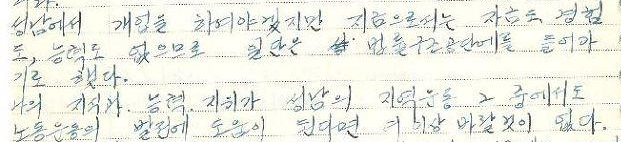 성남에서 개업을 하여야겠지만 지금으로서는 자금도, 경험
도, 능력도 없으므로 일단은 법률구조공단에를 들어가
기로 했다.
나의 지식과 능력, 지혜가 성남의 지역운동 그 중에서도
노동운동의 발전에 도움이 된다면 더 이상 바랄것이 없다.